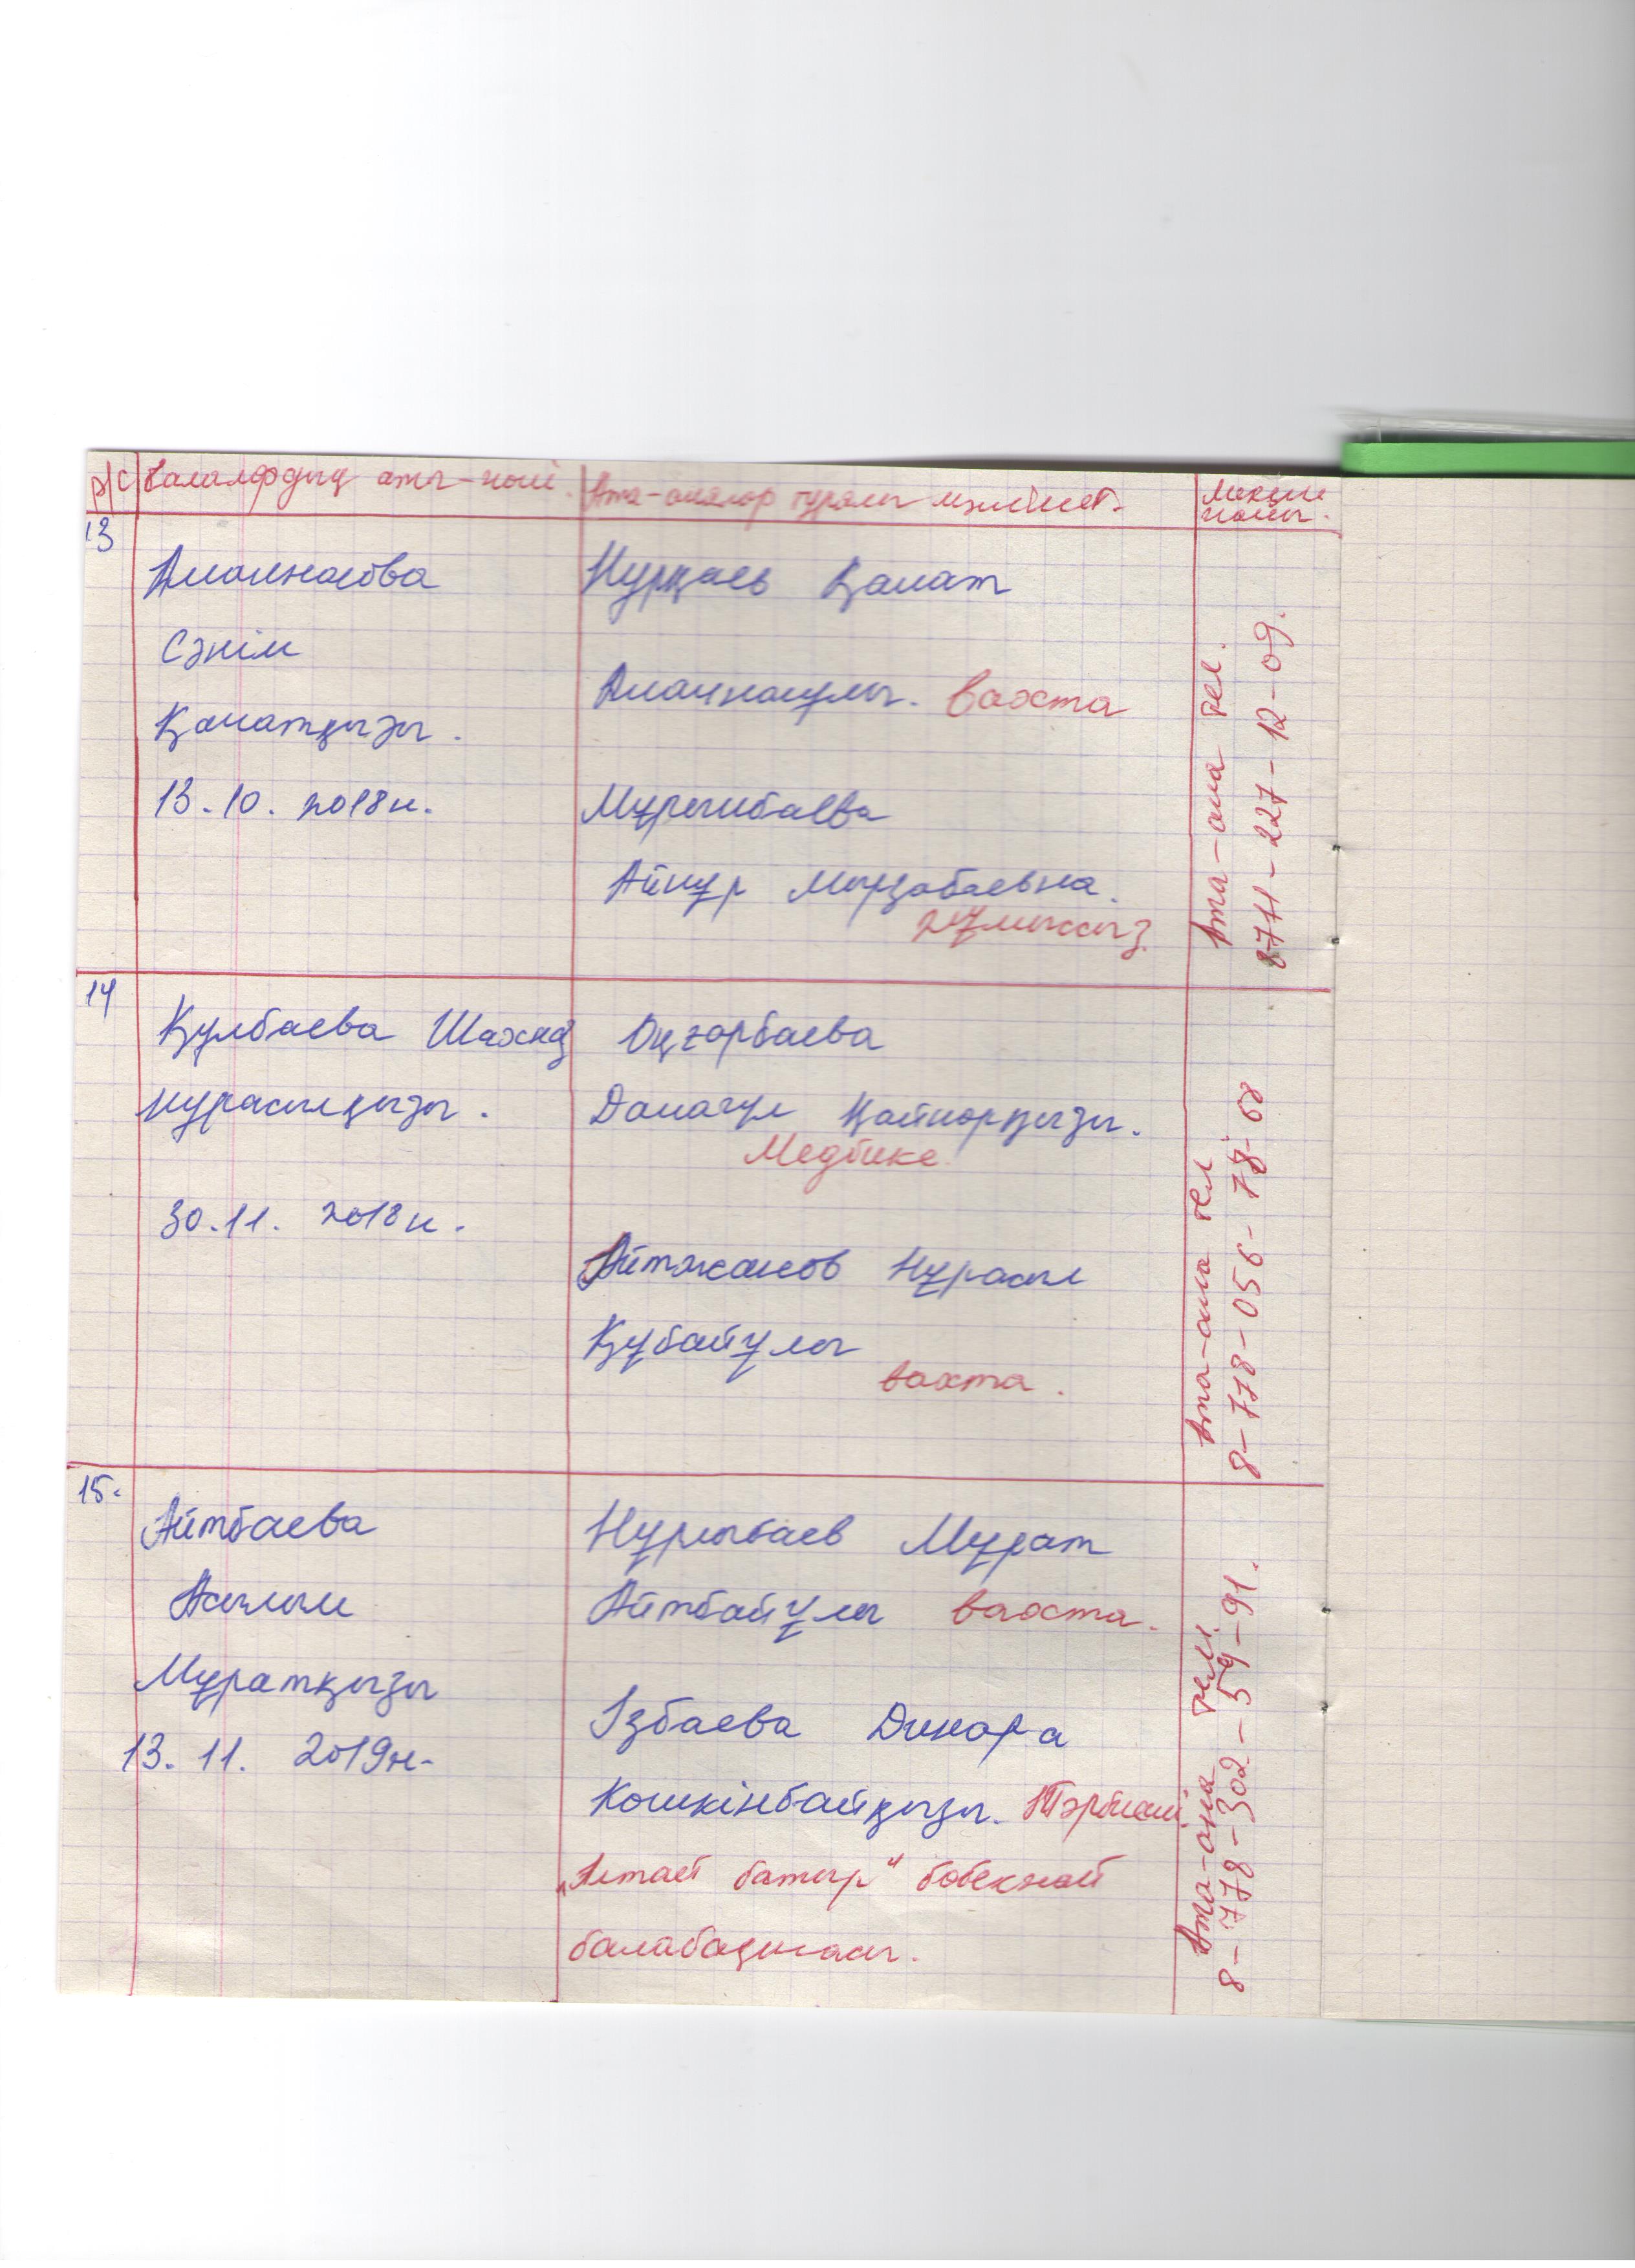 р/с Балалардың аты-жөні. Ата-аналар туралы мәлімет. Мекен
жайы.
13
Сәнім
Қанатқызы.
13.10. 2018ж.
Қанат
вахта
Айнұр Мырзабаевна.
жұмыссыз.
Ата-ана тел.
8711-227-12-09.
14
Құлбаева Шахназ
Нұрасылқызы.
30.11. 2018ж.
Оңғарбаева
Данагүл
Медбике
Айтжанов Нұрасыл
Құбайұлы
вахта.
Ата-ана тел
8-778-056-78-68
15.
Айтбаева
Асылым
Мұратқызы
13.11. 2019ж.
Нұрлыбаев Мұрат
Айтбайұлы вахта.
Ізбаева Динара
Кошкінбайқызы. Тәрбиеші.
батыр" бөбекжай
балабақшасы.
Ата-ана телі
8-778-302-59-91.